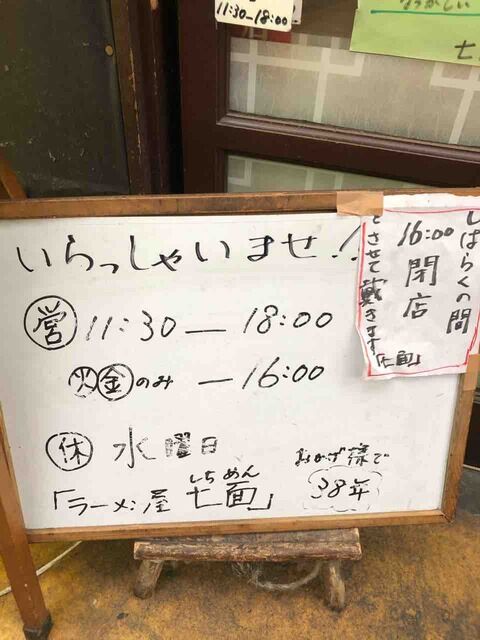 11:30-18:00
なつかしい
七
いらっしゃいませ!!
営 11:30 — 18:00
火 金 のみ — 16:00
休 水曜日
「ラーメン屋 七面」
しち めん
おかげ様で
38年
しばらくの間
16:00 閉店
とさせて戴きます
「七面」